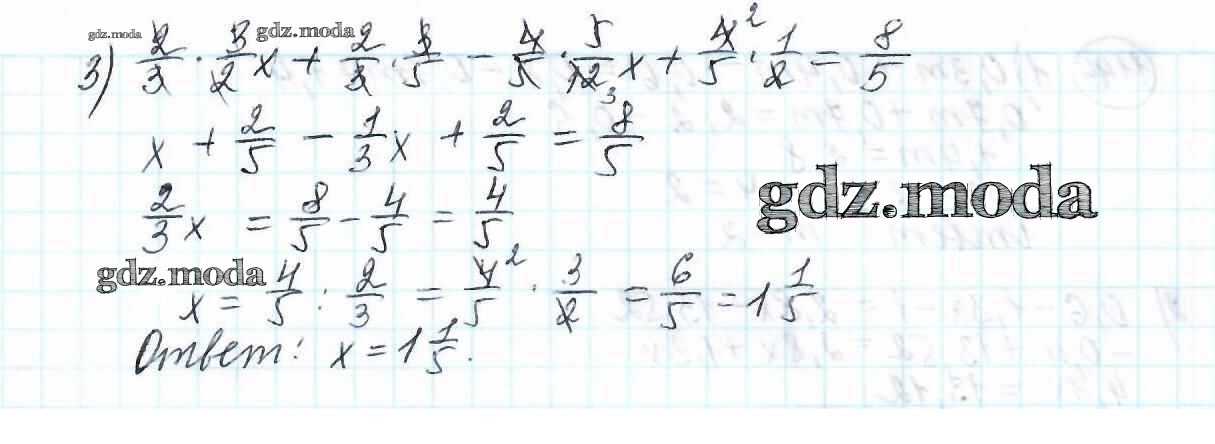 gdz.moda gdz.moda
3) 2/3 · 3/2 x + 2/3 · 3/5 − 4/5 · 5/12 3 x + 4/5 2 · 1/2 = 8/5
x + 2/5 − 1/3 x + 2/5 = 8/5
gdz.moda
2/3 x = 8/5 − 4/5 = 4/5
gdz.moda
x = 4/5 : 2/3 = 4/5 2 · 3/2 = 6/5 = 1 1/5
Ответ: x = 1 1/5.